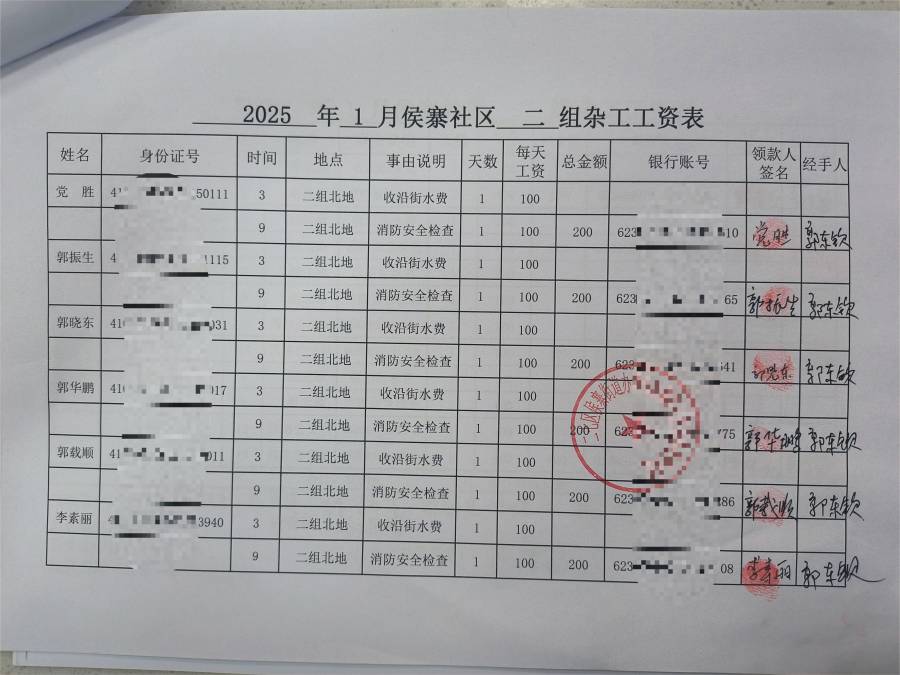 2025 年 1 月侯寨社区 二 组杂工工资表
姓名 身份证号 时间 地点 事由说明 天数 每天工资 总金额 银行账号 领款人签名 经手人
党 胜 41 50111 3 二组北地 收沿街水费 1 100
9 二组北地 消防安全检查 1 100 200 623 510 党胜 郭东钦
郭振生 4 1115 3 二组北地 收沿街水费 1 100
9 二组北地 消防安全检查 1 100 200 623 65 郭振生 郭东钦
郭晓东 410 031 3 二组北地 收沿街水费 1 100
9 二组北地 消防安全检查 1 100 200 623 541 郭晓东 郭东钦
郭华鹏 410 017 3 二组北地 收沿街水费 1 100
9 二组北地 消防安全检查 1 100 200 623 775 郭华鹏 郭东钦
郭载顺 41 011 3 二组北地 收沿街水费 1 100
9 二组北地 消防安全检查 1 100 200 623 386 郭载顺 郭东钦
李素丽 4 3940 3 二组北地 收沿街水费 1 100
9 二组北地 消防安全检查 1 100 200 623 08 李素丽 郭东钦
二七区侯寨街道办